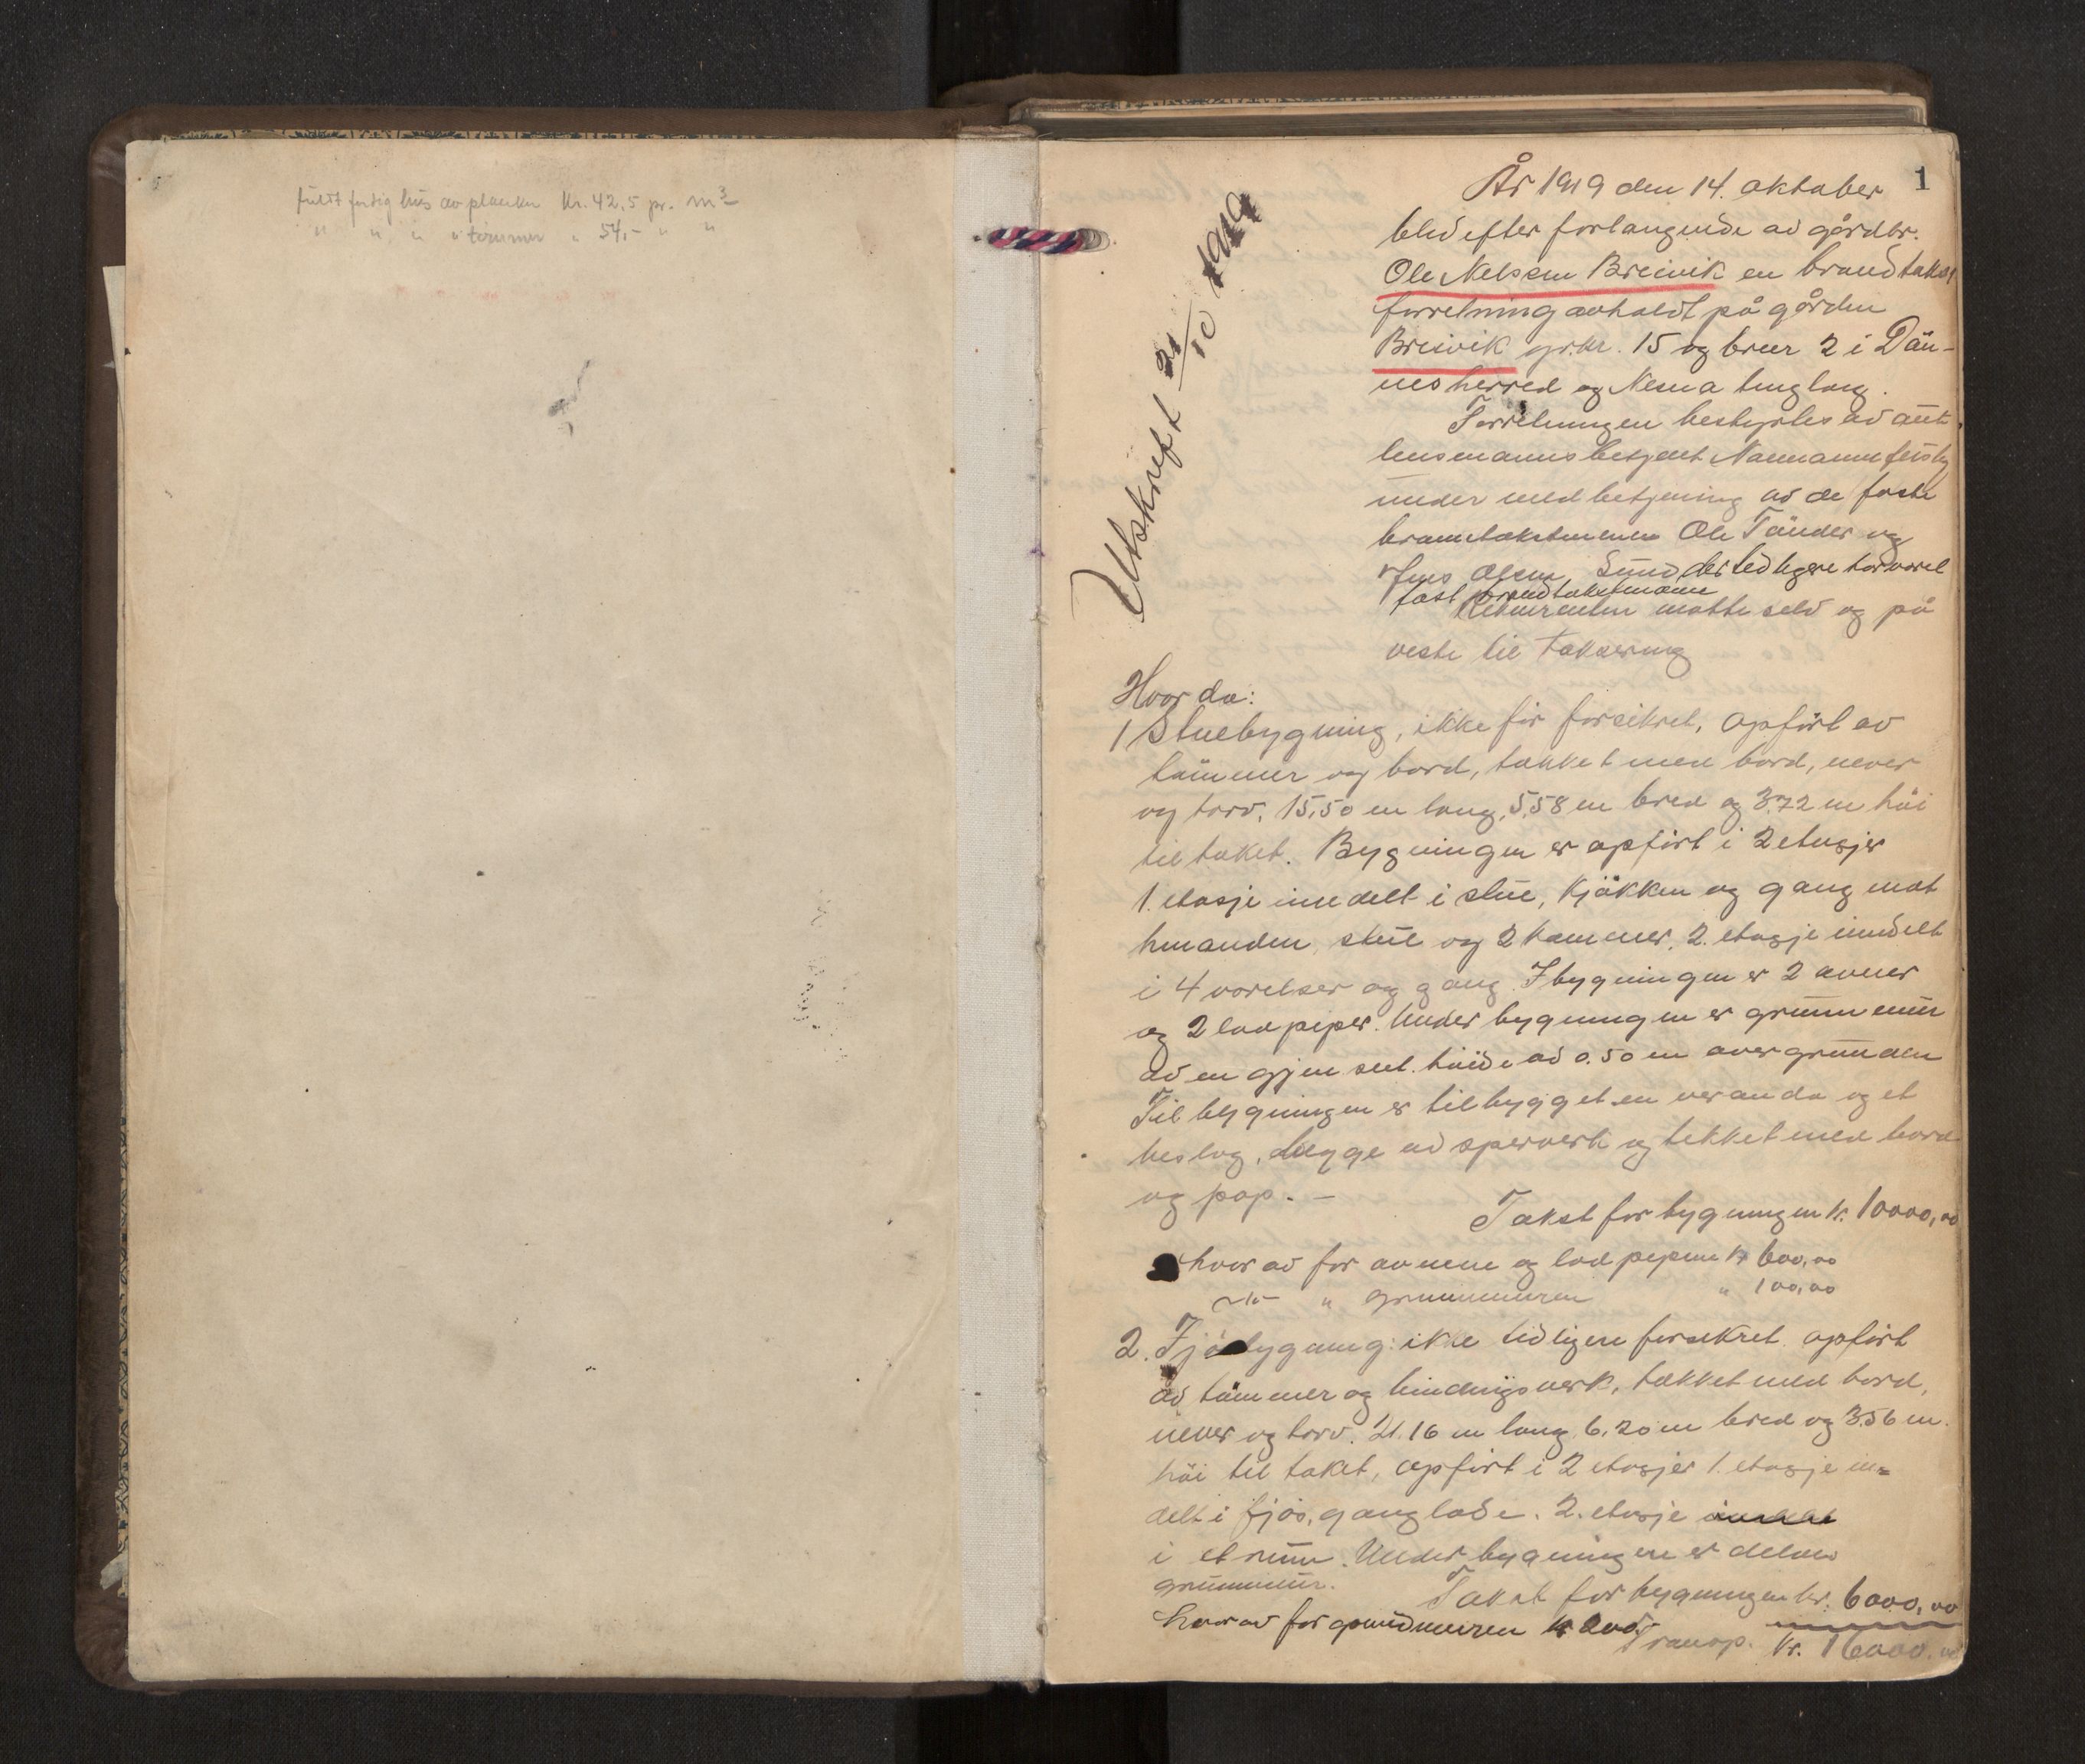 fuldt færdig hus av planker kr. 42,5 pr. m³
" " " " tømmer " 54,- " "
1
År 1919 den 14. oktober
blev efter forlangende av gårdbr.
Ole Nelsen Breivik en brandtakst
forretning avholdt på gården
Breivik gr.nr. 15 og brnr 2 i Dön-
nes herred og Nesna tinglag.
Forretningen bestyrtes av aut.
lensmannsbetjent Normann
under medbetjening av de faste
branntakstmenn Ole Tander og
Jens Olsen Sund der tidligere har været
fast brandtakstmann
Rekvirenten møtte selv og på
viste til taksering
Utskrift 21/10 1919
Hvorda:
1 Stuebygning, ikke før forsikret, opført av
tømmer og bord, tækket med bord, never
og torv, 15,50 m lang, 5,58 m bred og 3,72 m høi
til taket. Bygningen er opført i 2 etasjer
1. etasje inndelt i stue, kjøkken og gang mot
hinanden, stue og 2 kammer. 2. etasje inndelt
i 4 værelser og gang. I bygningen er 2 ovner
og 2 lodpiper. Under bygningen er grunnmur
av en gjensnt. høide av 0.50 m over grunnen
Til bygningen er tilbygget en veranda og et
beslag, begge av sperverk og tekket med bord
og pap. -
Takst for bygningen kr. 10000,00
hvorav for ovnene og lodpipene kr 600,00
-"- " grunnmuren " 100,00
2. Fjøsbygning: ikke tidligere forsikret opført
av tømmer og bindingsverk, tækket med bord,
never og torv. 21.16 m lang 6,20 m bred og 3.56 m.
høi til taket, opført i 2 etasjer 1. etasje inn-
delt i fjøs, gang lade. 2. etasje inndelt
i et rum. Under bygningen er delvis
grunnmur.
Takst for bygningen kr. 6000,00
hvorav for grundmuren kr 200,-
Transp. kr. 16000.00